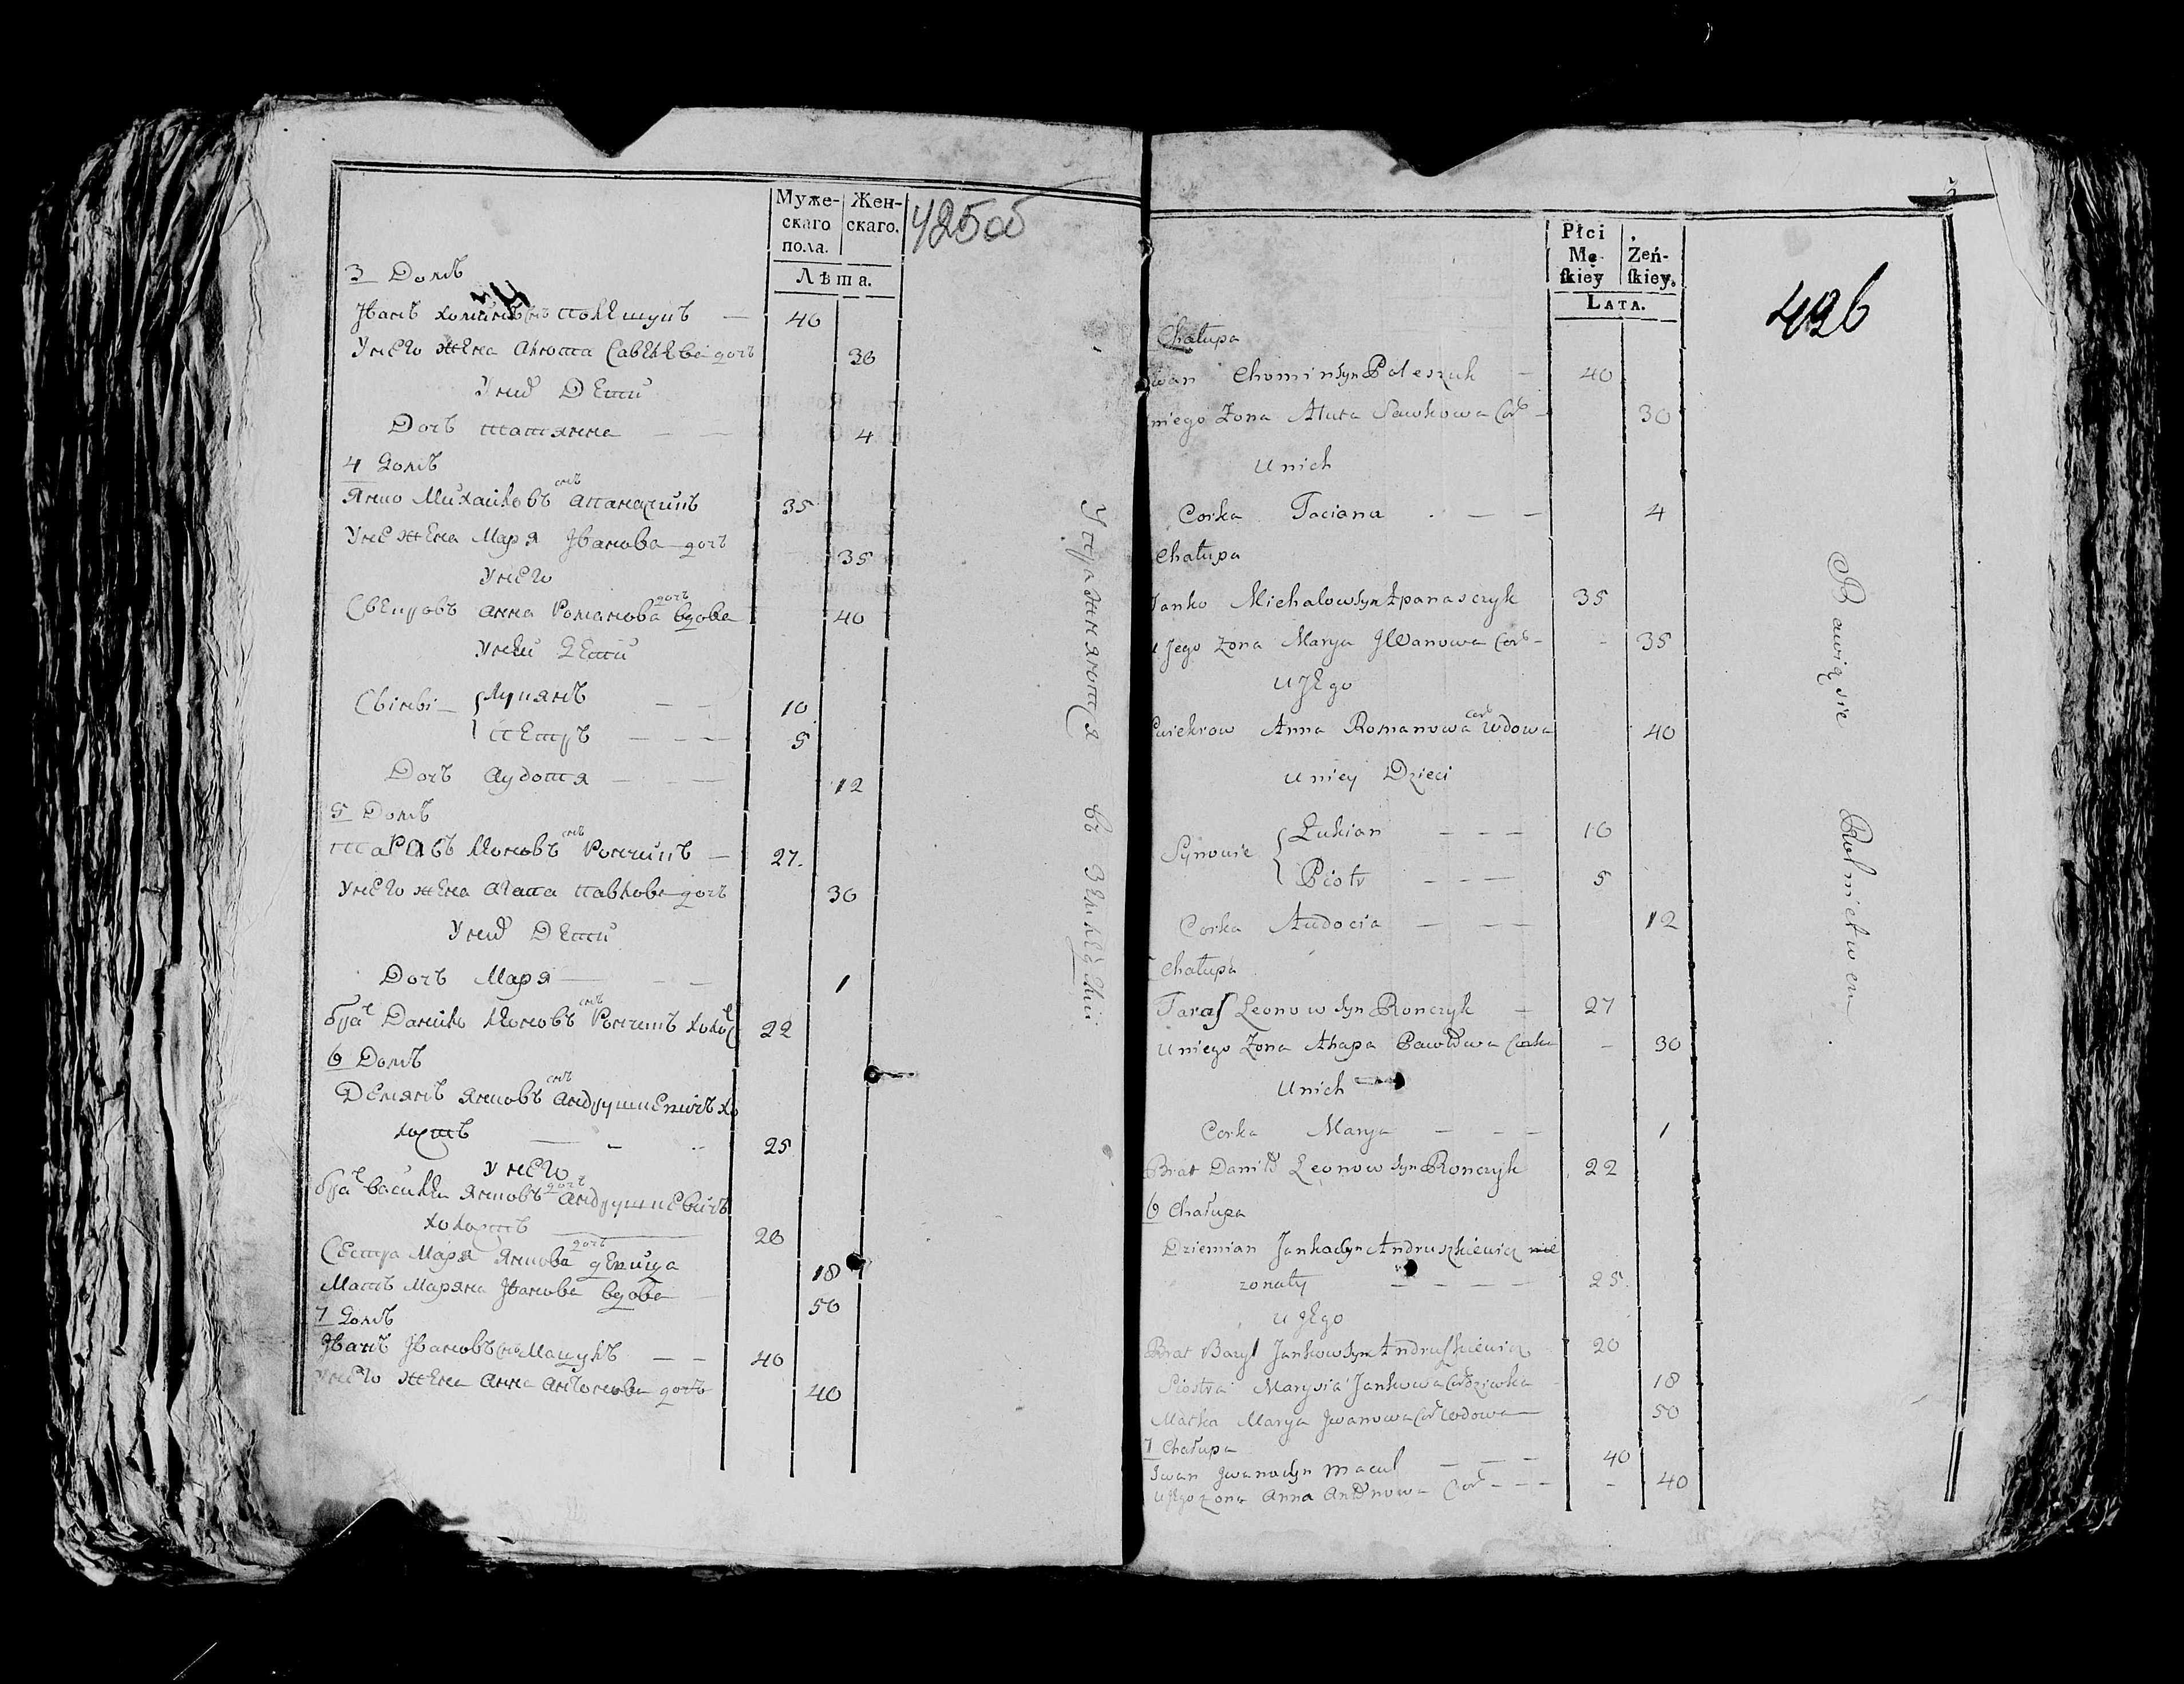 Муже-
скаго
пола.
Жен-
скаго.
Лѣта.
425об
3 Домъ
Иванъ Хоминъ снъ Полешукъ — 40
У него жена Анюта Савкова дочъ 30
У нихъ Дети
Дочъ Татянна — — 4
4 Домъ
Янко Михайловъ снъ Апанасчикъ 35
У не жена Маря Иванова дочъ 35
У него
Свекровь Анна Романова дочъ вдова 40
У ней Дети
Лукянъ — — 10
Петръ — — — 5
Дочъ Аудотя — — — 12
5 Домъ
Тарасъ Леоновъ снъ Рончикъ — 27.
У него жена Агапа Павлова дочъ 30
У нихъ Дети
Дочъ Маря — — — 1
братъ Данило Леоновъ снъ Рончикъ холос 22
6 Домъ
Демянъ Янковъ снъ Андрушкевичъ хо
лостъ — - - 25
У него
братъ Василь Янковъ Андрушкевичъ
холостъ 20
Сестра Маря Янкова дочъ девица 18
Мать Маряна Иванова вдова — 50
7 Домъ
Иванъ Ивановъ снъ Мацукъ — — 40
У него жена Анна Антонова дочъ 40
Упражняются въ Земледелии
Płci
Mę-
ſkiey
Żeń-
ſkiey.
LATA.
426
Chałupa
Iwan Chomin Syn Poleszuk — 40
niego Zona Anuta Sawkowa Cor — 30
U nich
Corka Taciana . — — 4
Chałupa
Janko Michalow Syn Apanasczyk 35
u Jego Zona Marya JWanowa Cor — - 35
U JEgo
Swiekrow Anna Romanowa Cor Wdowa 40
U niey Dzieci
Synowie
Łukian — — — 10
Piotr — - — 5
Corka Audocia — — — 12
Chałupa
Taraſ Leonow Syn Ronczyk — 27
U niego Zona Ahapa Pawłowa Corka — 30
U nich
Corka Marya — — — 1
Brat Daniło Leonow Syn Ronczyk 22
6 Chałupa
Dziemian Janka Syn Andruszkiewicz nie
zonaty — — — — 25.
U JEgo
Brat Bazyl Jankow Syn Andruſzkiewicz 20
Siostra Marysia Jankowa Cor Dziewka 18
Matka Marya Jwanowa Cor Wdowa — 50
7 Chałupa
Iwan Jwana Syn Macuk — — — 40
U JEgo Zona Anna Antonowa Cor - - - - 40
Bawią sie Rolnictwem